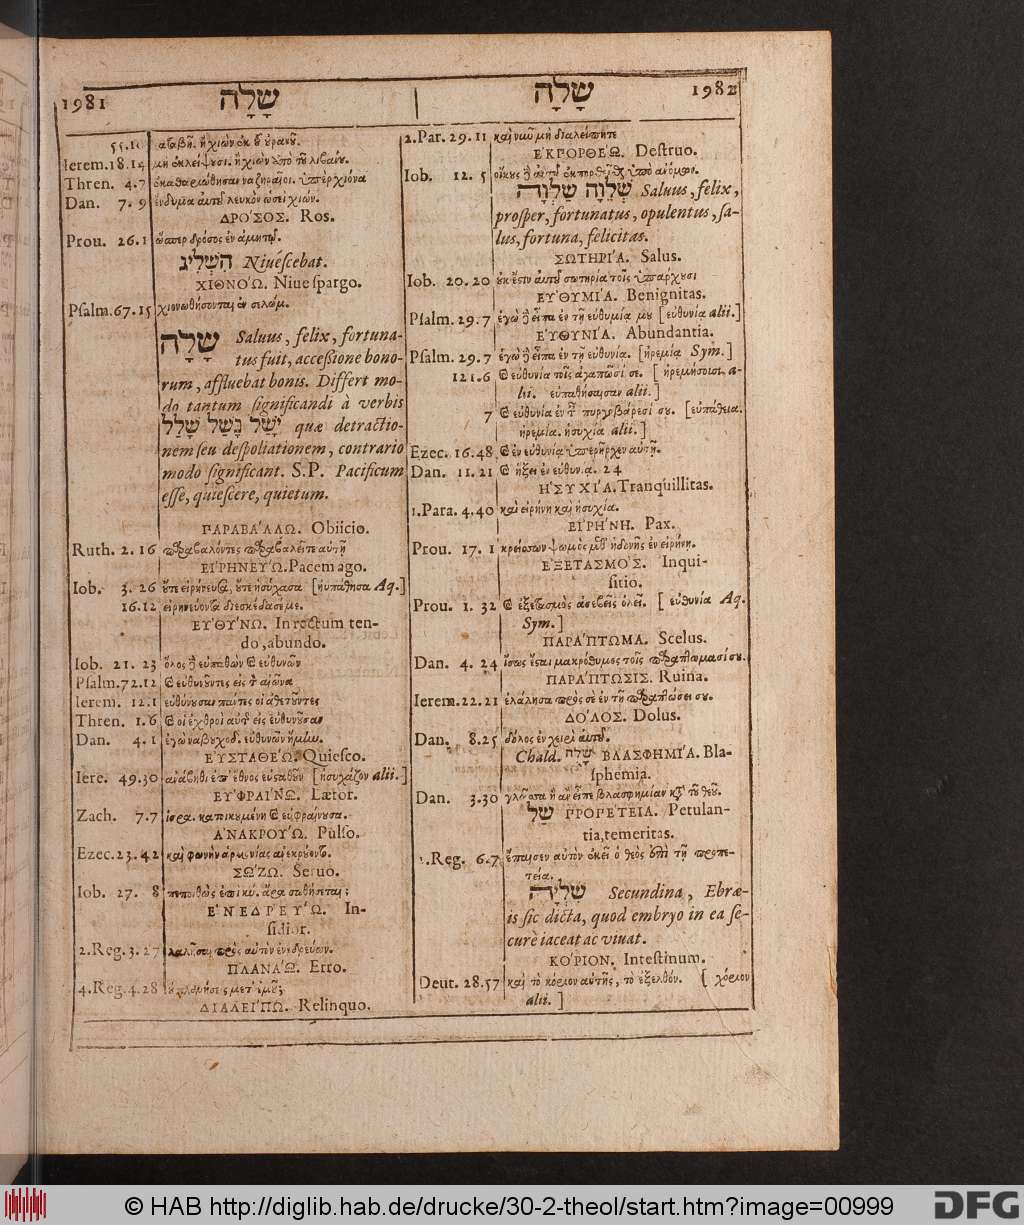 1981 שָׁלָה
55.10
Ierem.18.14
Thren. 4.7
Dan. 7. 9 ἔνδυμα αὐτοῦ λευκὸν ὡσεὶ χιών.
ΔΡΟ΄ΣΟΣ. Ros.
Prou. 26.1 ὥσπερ δρόσος ἐν ἀμητῷ.
הִשְׁלִיג Niuéscebat.
ΧΙΘΝΟ΄Ω. Niue spargo.
Psalm.67.15 χιονωθήσονται ἐν σελμών.
שָׁלָה Saluus, felix, fortuna-
tus fuit, accessione bono-
rum, affluebat bonis. Differt mo-
do tantum significandi à verbis
יָשַׁל נָשַׁל שָׁלַל quæ detractio-
nem seu despoliationem, contrario
modo significant. S.P. Pacificum
esse, quiescere, quietum.
ΠΑΡΑΒΑ΄ΛΛΩ. Obiicio.
Ruth. 2. 16 παραβαλόντες παραβαλεῖτε αὐτῇ
ΕΙ᾽ΡΗΝΕΥ΄Ω. Pacem ago.
Iob. 3. 26 οὔτε εἰρήνευσα, οὔτε ἡσύχασα [ηὐπάθησα Aq.]
16.12 εἰρηνεύοντα διεσκέδασέ με.
ΕΥ᾽ΘΥ΄ΝΩ. In rectum ten-
do, abundo.
Iob. 21. 23 ὅλος δὲ εὐπαθῶν καὶ εὐθυνῶν
Psalm.72.12 καὶ εὐθυνοῦντες εἰς τ αἰῶνα
Ierem. 12.1 εὐθύνουσι πάντες οἱ ἀθετοῦντες
Thren. 1.6 καὶ οἱ ἐχθροὶ αὐτ εἰς εὐθυνοῦσαν
Dan. 4. 1 ἐγὼ ναβουχοδ. εὐθυνῶν ἤμην.
ΕΥ᾽ΣΤΑΘΕ΄Ω. Quiesco.
Iere. 49.30 ἀνάβηθι ἐπ᾽ ἔθνος εὐσταθοῦν [ἡσυχάζον alii.]
ΕΥ᾽ΦΡΑΙ΄ΝΩ. Lætor.
Zach. 7.7 ἱερου. κατοικουμένη καὶ εὐφραίνουσα.
Α᾽ΝΑΚΡΟΥ΄Ω. Pulso.
Ezec. 23. 42 καὶ φωνὴν ἁρμονίας ἀνεκρούοντο.
ΣΩ΄ΖΩ. Seruo.
Iob. 27. 8
Ε᾽ΝΕΔΡΕΥ΄Ω. In-
sidior.
2.Reg.3. 27 λαλῆσαι πρὸς αὐτὸν ἐνεδρεύων.
ΠΛΑΝΑ΄Ω. Erro.
4.Reg.4.28 οὐ πλανήσεις μετ᾽ ἐμοῦ;
ΔΙΑΛΕΙ΄ΠΩ. Relinquo.
שָׁלָה 1982
2.Par. 29.11 καὶ νῦν μὴ διαλείπητε
Ε᾽ΚΡΟΡΘΕ΄Ω. Destruo.
Iob. 12. 5
שַׁלְוָה שָׁלֵוָה Saluus, felix,
prosper, fortunatus, opulentus, sa-
lus, fortuna, felicitas.
ΣΩΤΗΡΙ΄Α. Salus.
Iob. 20. 20 οὐκ ἔστιν αὐτοῦ σωτηρία τοῖς ὑπάρχουσι
ΕΥ᾽ΘΥΜΙ΄Α. Benignitas.
Psalm. 29. 7 ἐγὼ δὲ εἶπα ἐν τῇ εὐθυμίᾳ μου [εὐθυνίᾳ alii.]
Ε᾽ΥΘΥΝΙ΄Α. Abundantia.
Psalm. 29. 7 ἐγὼ δὲ εἶπα ἐν τῇ εὐθυνίᾳ. [ἠρεμίᾳ Sym.]
121.6 καὶ εὐθυνία τοῖς ἀγαπῶσί σε. [ἠρεμήσουσι. a-
lii. εὐπαθήσαισαν alii.]
7 καὶ εὐθυνία ἐν τ πυργοβάρεσί σου. [εὐπάθεια.
ἠρεμία. ἡσυχία alii.]
Ezec. 16.48 καὶ ἐν εὐθυνίᾳ ὑπερῆρχεν αὐτή.
Dan. 11. 21 καὶ ἥξει ἐν εὐθυνίᾳ. 24
Η᾽ΣΥΧΙ΄Α. Tranquillitas.
1.Para. 4.40 καὶ εἰρήνη καὶ ἡσυχία.
ΕΙ᾽ΡΗ΄ΝΗ. Pax.
Prou. 17. 1 κρείσσων ψωμὸς μεθ᾽ ἡδονῆς ἐν εἰρήνῃ.
Ε᾽ΞΕΤΑΣΜΟ΄Σ. Inqui-
sitio.
Prou. 1. 32 καὶ ἐξετασμὸς ἀσεβεῖς ὀλεῖ. [εὐθυνία Aq.
Sym.]
ΠΑΡΑ΄ΠΤΩΜΑ. Scelus.
Dan. 4. 24 ἴσως ἔσται μακρόθυμος τοῖς παραπτώμασί σου.
ΠΑΡΑ΄ΠΤΩΣΙΣ. Ruina.
Ierem.22.21 ἐλάλησα πρὸς σὲ ἐν τῇ παραπτώσει σου.
ΔΟ΄ΛΟΣ. Dolus.
Dan. 8.25 δόλος ἐν χειρὶ αὐτοῦ.
Chald. שָׁלָה ΒΛΑΣΦΗΜΙ΄Α. Bla-
sphemia.
Dan. 3.30 γλῶσσα ἣ ἂν εἴπῃ βλασφημίαν κατὰ τοῦ θεοῦ.
שַׁל PROPETEIA. Petulan-
tia, temeritas.
2.Reg. 6.7 ἔπαισεν αὐτὸν ἐκεῖ ὁ θεὸς ἐπὶ τῇ προπε-
τείᾳ.
שִׁלְיָה Secundina, Ebræ-
is sic dicta, quod embryo in ea se-
curè iaceat ac viuat.
ΚΟ΄ΡΙΟΝ. Intestinum.
Deut. 28.57 καὶ τὸ κόριον αὐτῆς, τὸ ἐξελθόν. [χόριον
alii.]
© HAB http://diglib.hab.de/drucke/30-2-theol/start.htm?image=00999
DFG